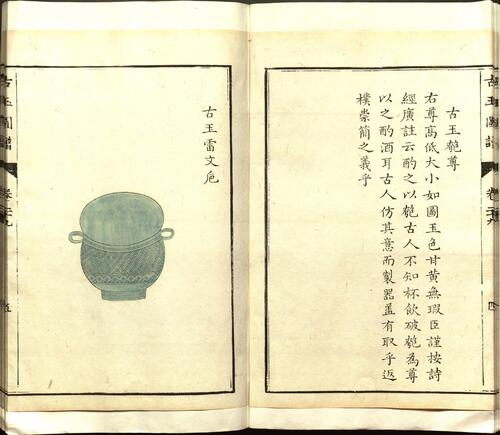 古玉匏尊
右尊高低大小如圖玉色甘黃無瑕臣謹按詩
經廣註云酌之以匏古人不知杯飲破匏為尊
以之酌酒耳古人仿其意而製器蓋有取乎返
樸崇簡之義乎
古玉圖譜
卷二十九
四
古玉雷文巵
古玉圖譜
卷二十九
五